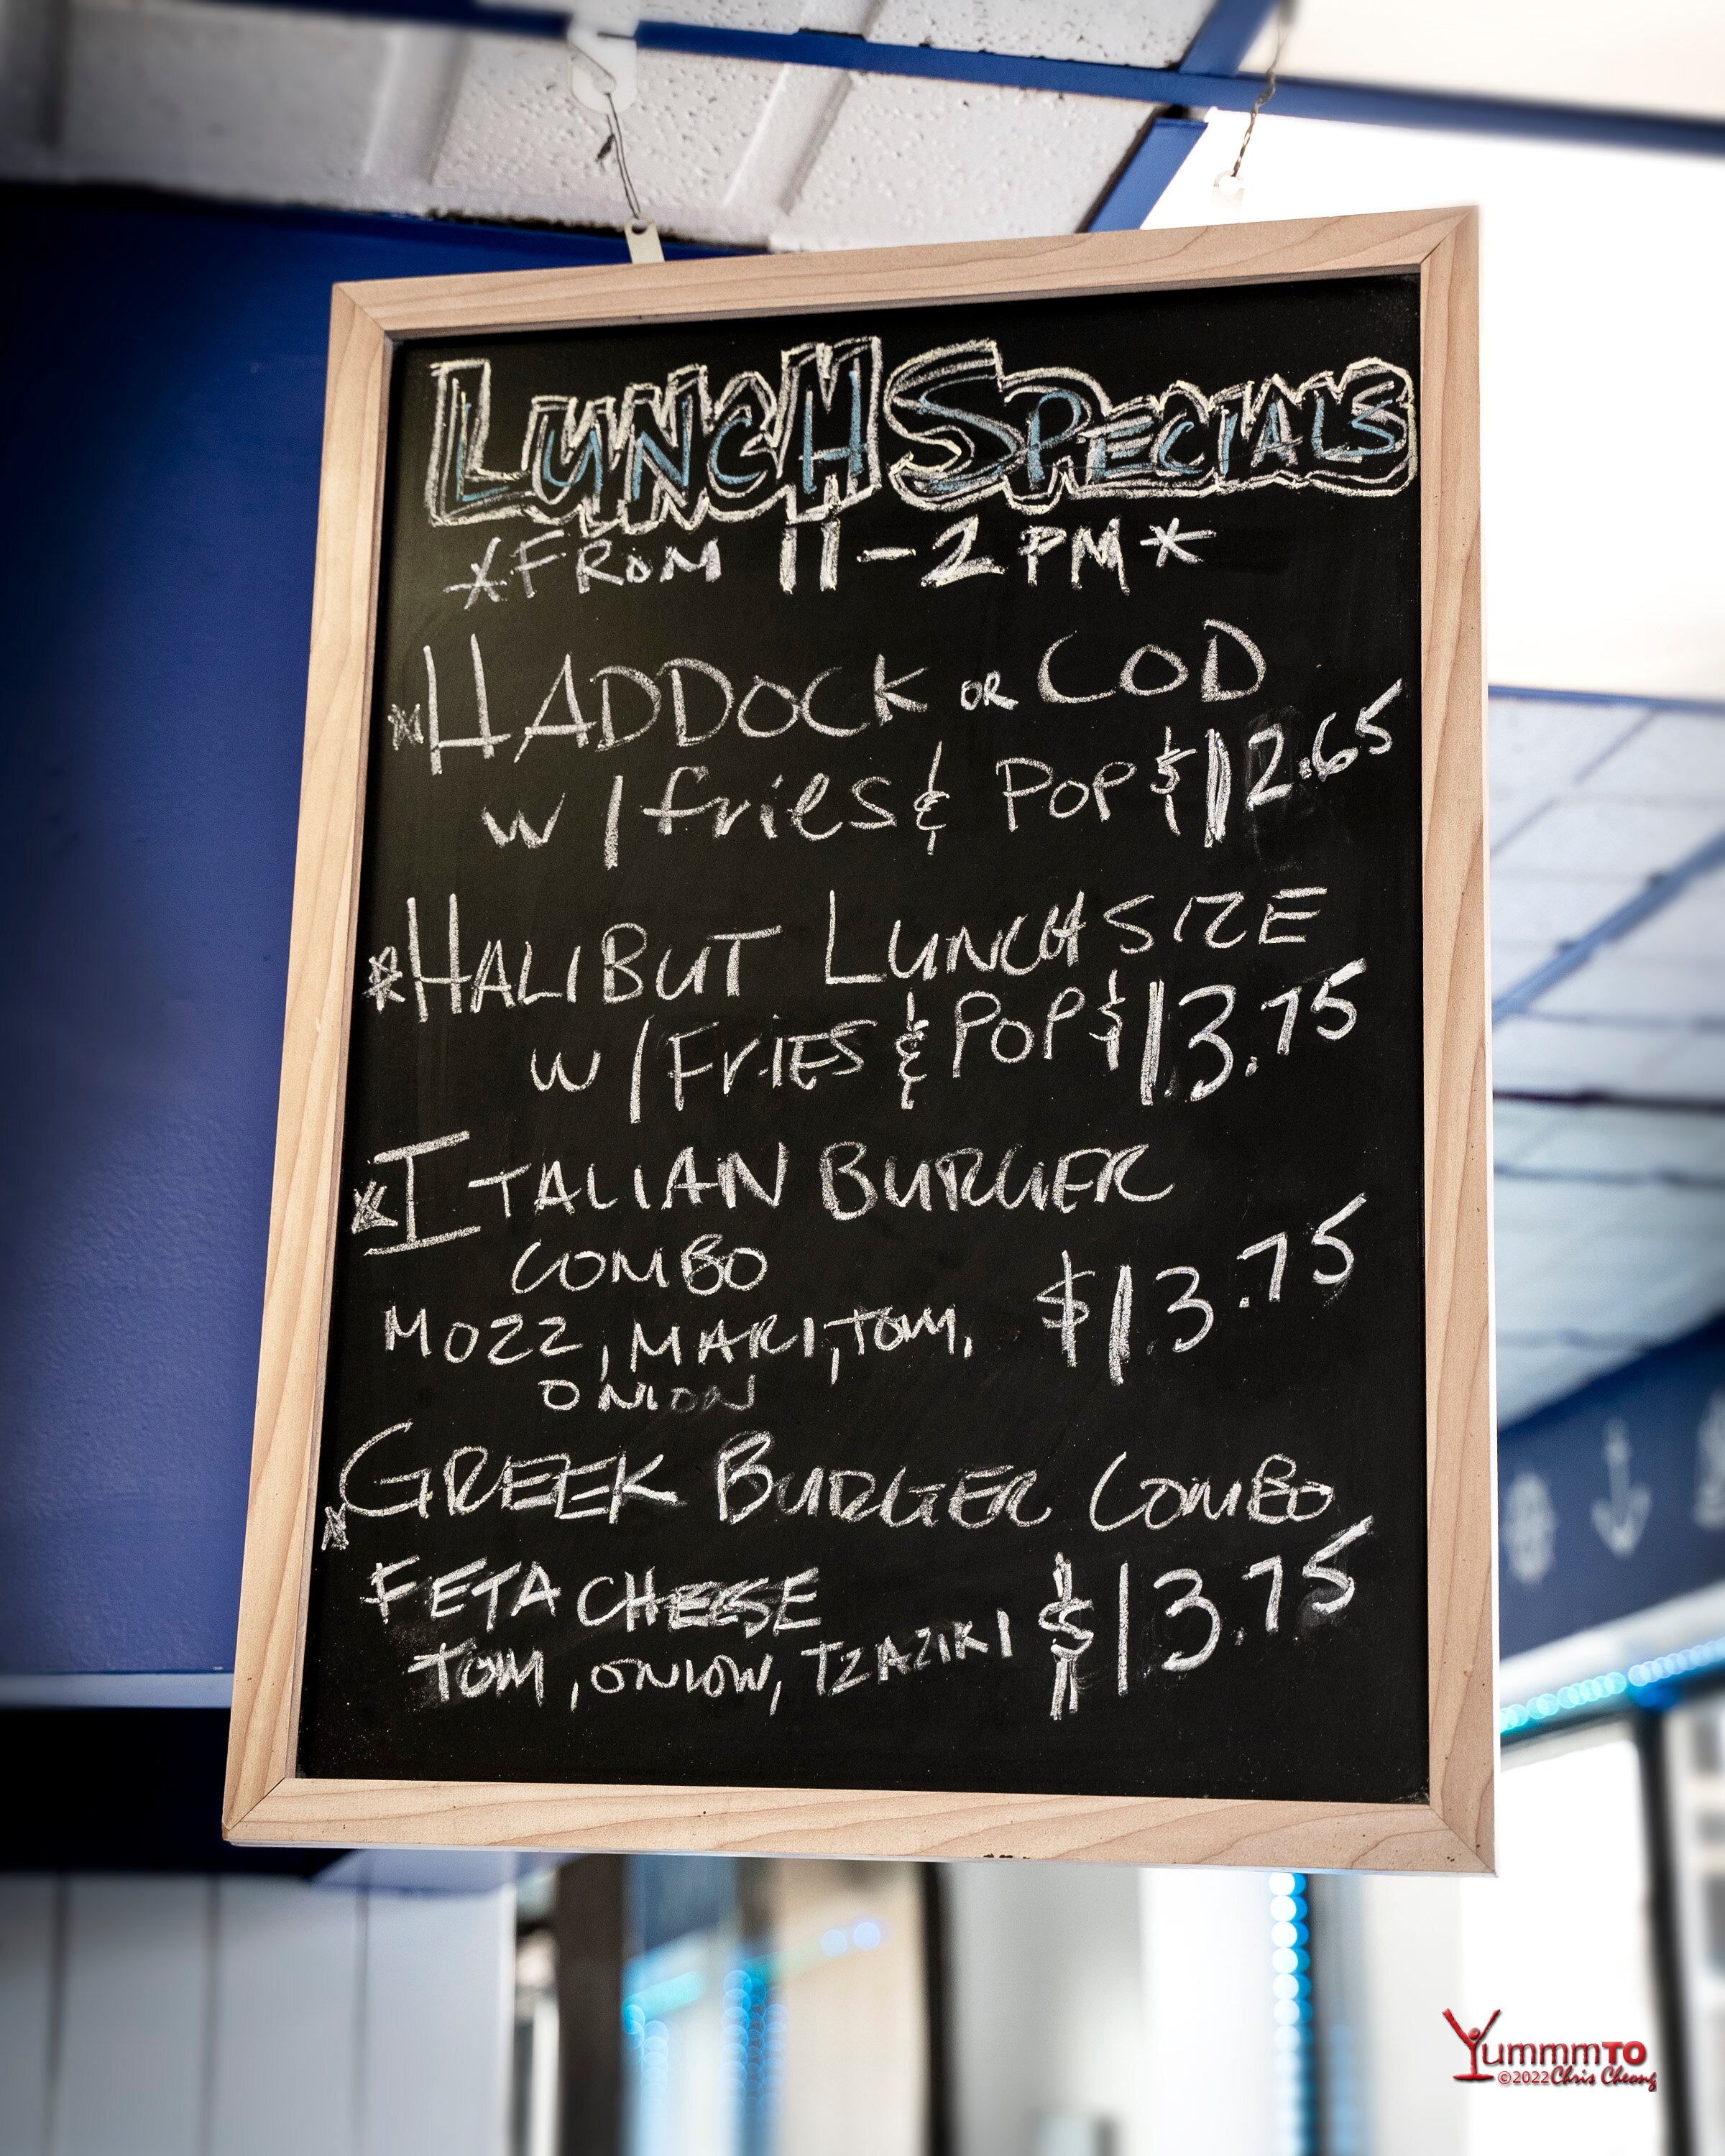 LUNCH SPECIALS
*FROM 11-2 PM*
*HADDOCK OR COD
w/fries & POP $12.65
*HALIBUT LUNCH SIZE
w/FrIES & POP $13.75
*ITALIAN BURGER
COMBO
MOZZ, MARI, TOM, $13.75
ONION
*GREEK BURGER COMBO
FETA CHEESE
TOM, ONION, TZAZIKI $13.75
YummmTO
©2022 Chris Cheong